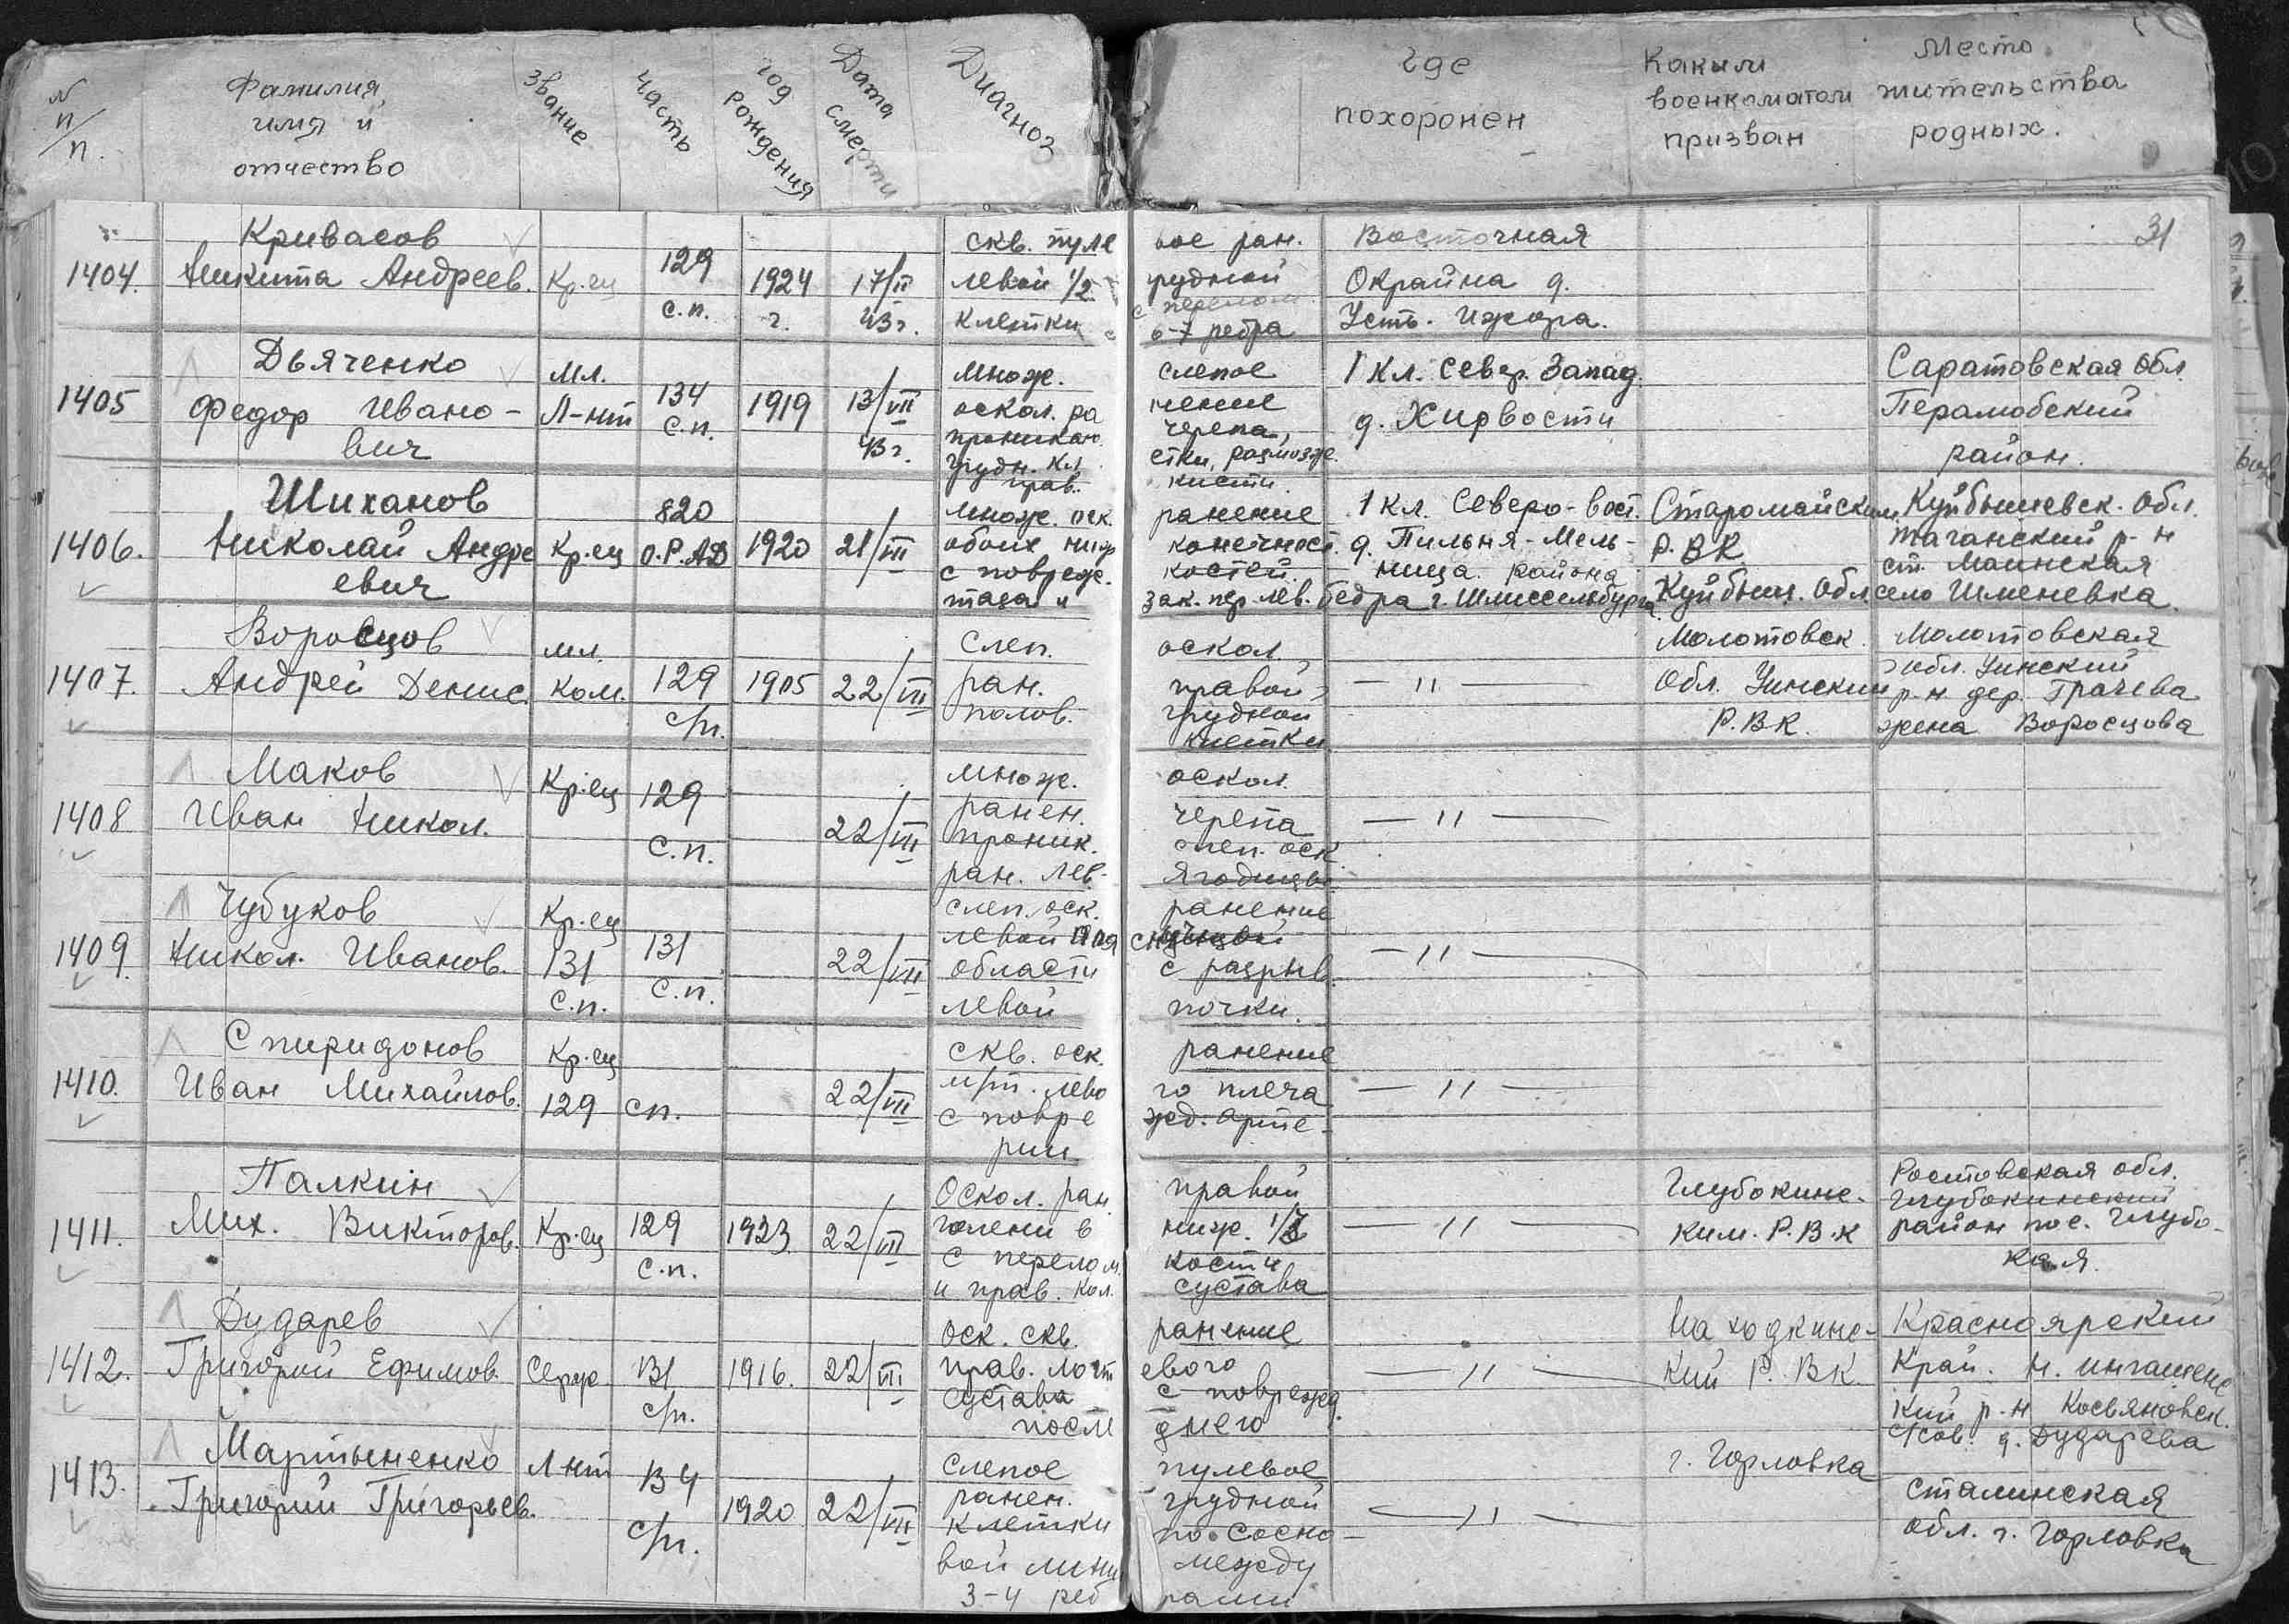 N п/п. Фамилия имя и отчество Звание Часть год рождения Дата смерти Диагноз Где похоронен Каким военкоматом призван Место жительства родных.
31
Кривасов скв. пуле вое ран. Восточная
1404. Никита Андреев. Кр.ец 129 1924 17/II левой 1/2 грудной Окрайна д.
с.п. г. 43 г. клетки с перелом 6-7 ребра Усть. Ижора.
Дьяченко Мл. множ. слепое 1 кл. Север. Запад. Саратовская обл.
1405 Федор Ивано- Л-нт 134 1919 13/VII оскол. ра нение д. Хирвости
вич с.п. 43 г. проникаю. черепа, район.
грудн. кл етки, размозж.
прав. кисти.
Шиханов 820 множ. оск. ранение 1 кл. Северо-вост. Старомайским Куйбышевск. обл.
1406. Николай Андре Кр.ец О.Р.АД 1920 21/VII обоих ниж конечност. д. Пильня-Мель- Р.ВК р-н
евич с повреж. костей. ница. района ст. Маинская
таза и зак. пер. лев. бедра г. Шлиссельбурга Куйбыш. Обл. село Шменевка.
Воросцов мл. Слеп. оскол. Молотовск. Молотовская
1407. Андрей Денис. ком. 129 1905 22/VII ран. правой — 〃 — обл. Уинским обл. Уинский
с/п. полов. грудной Р.ВК. р-н дер. Грачева
клетки жена Воросцова
Маков Кр.ец 129 множ. оскол.
1408 Иван Никол. 22/VII ранен. черепа — 〃 —
с.п. проник. слеп. оск.
ран. лев. ягодицы
Чубуков Кр.ец слеп. оск. ранение
1409. Никол. Иванов. 131 131 22/VII левой пояснично й — 〃 —
с.п. с.п. области с разрыв.
левой почки.
Спиридонов Кр.ец скв. оск. ранение
1410. Иван Михайлов. 129 сп. 22/VII м/т. лево го плеча — 〃 —
с повре жд. арте-
рии.
Палкин Оскол. ран. правой Глубокинс- Ростовская обл.
1411. Мих. Викторов. Кр.ец 129 1923 22/VII голени в ниж. 1/3 — 〃 — ким. Р.В.К Глубокинский
с.п. с перелом. кости район пос. Глубо-
и прав. кол. сустава кая.
Дударев оск. скв. ранение Находкинс- Красноярский
1412. Григорий Ефимов. Серж 131 1916. 22/VII прав. локт евого — 〃 — кий Р.ВК. Край. Н. ингашенс
с/п. сустава с поврежд. кий р-н Косьяновск.
после днего с/сов. д. Дударева
Мартыненко Л-нт 134 Слепое пулевое г. Горловка
1413. Григорий Григорьев. 1920 22/VII ранен. грудной — 〃 — Сталинская
с/п. клетки по соско- обл. г. Горловка
вой лини между
3-4 реб рами